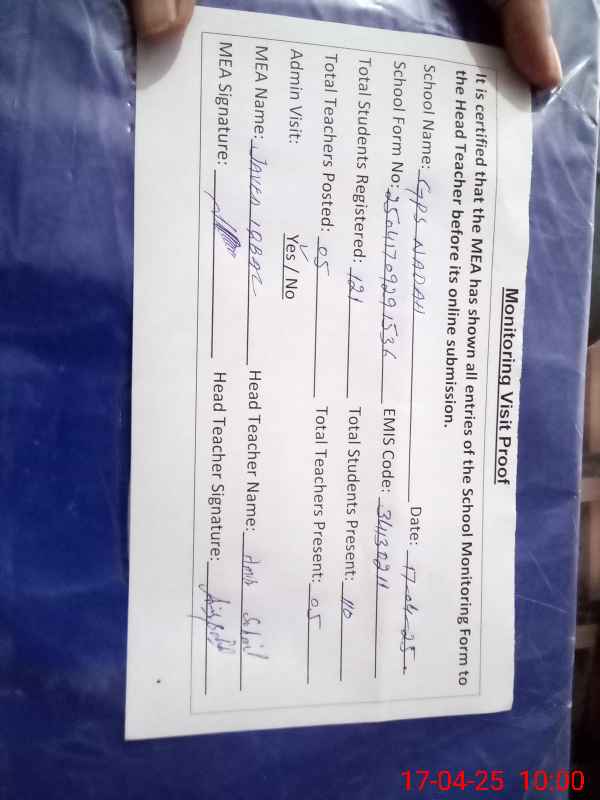 Monitoring Visit Proof
It is certified that the MEA has shown all entries of the School Monitoring Form to
the Head Teacher before its online submission.
School Name: GPS NADAH Date: 17-04-25
School Form No: 25041709291536 EMIS Code: 34130211
Total Students Registered: 121 Total Students Present: 110
Total Teachers Posted: 05 Total Teachers Present: 05
Admin Visit: Yes / No
MEA Name: JAVED IQBAL Head Teacher Name: Amir Sohail
MEA Signature: Head Teacher Signature:
17-04-25 10:00